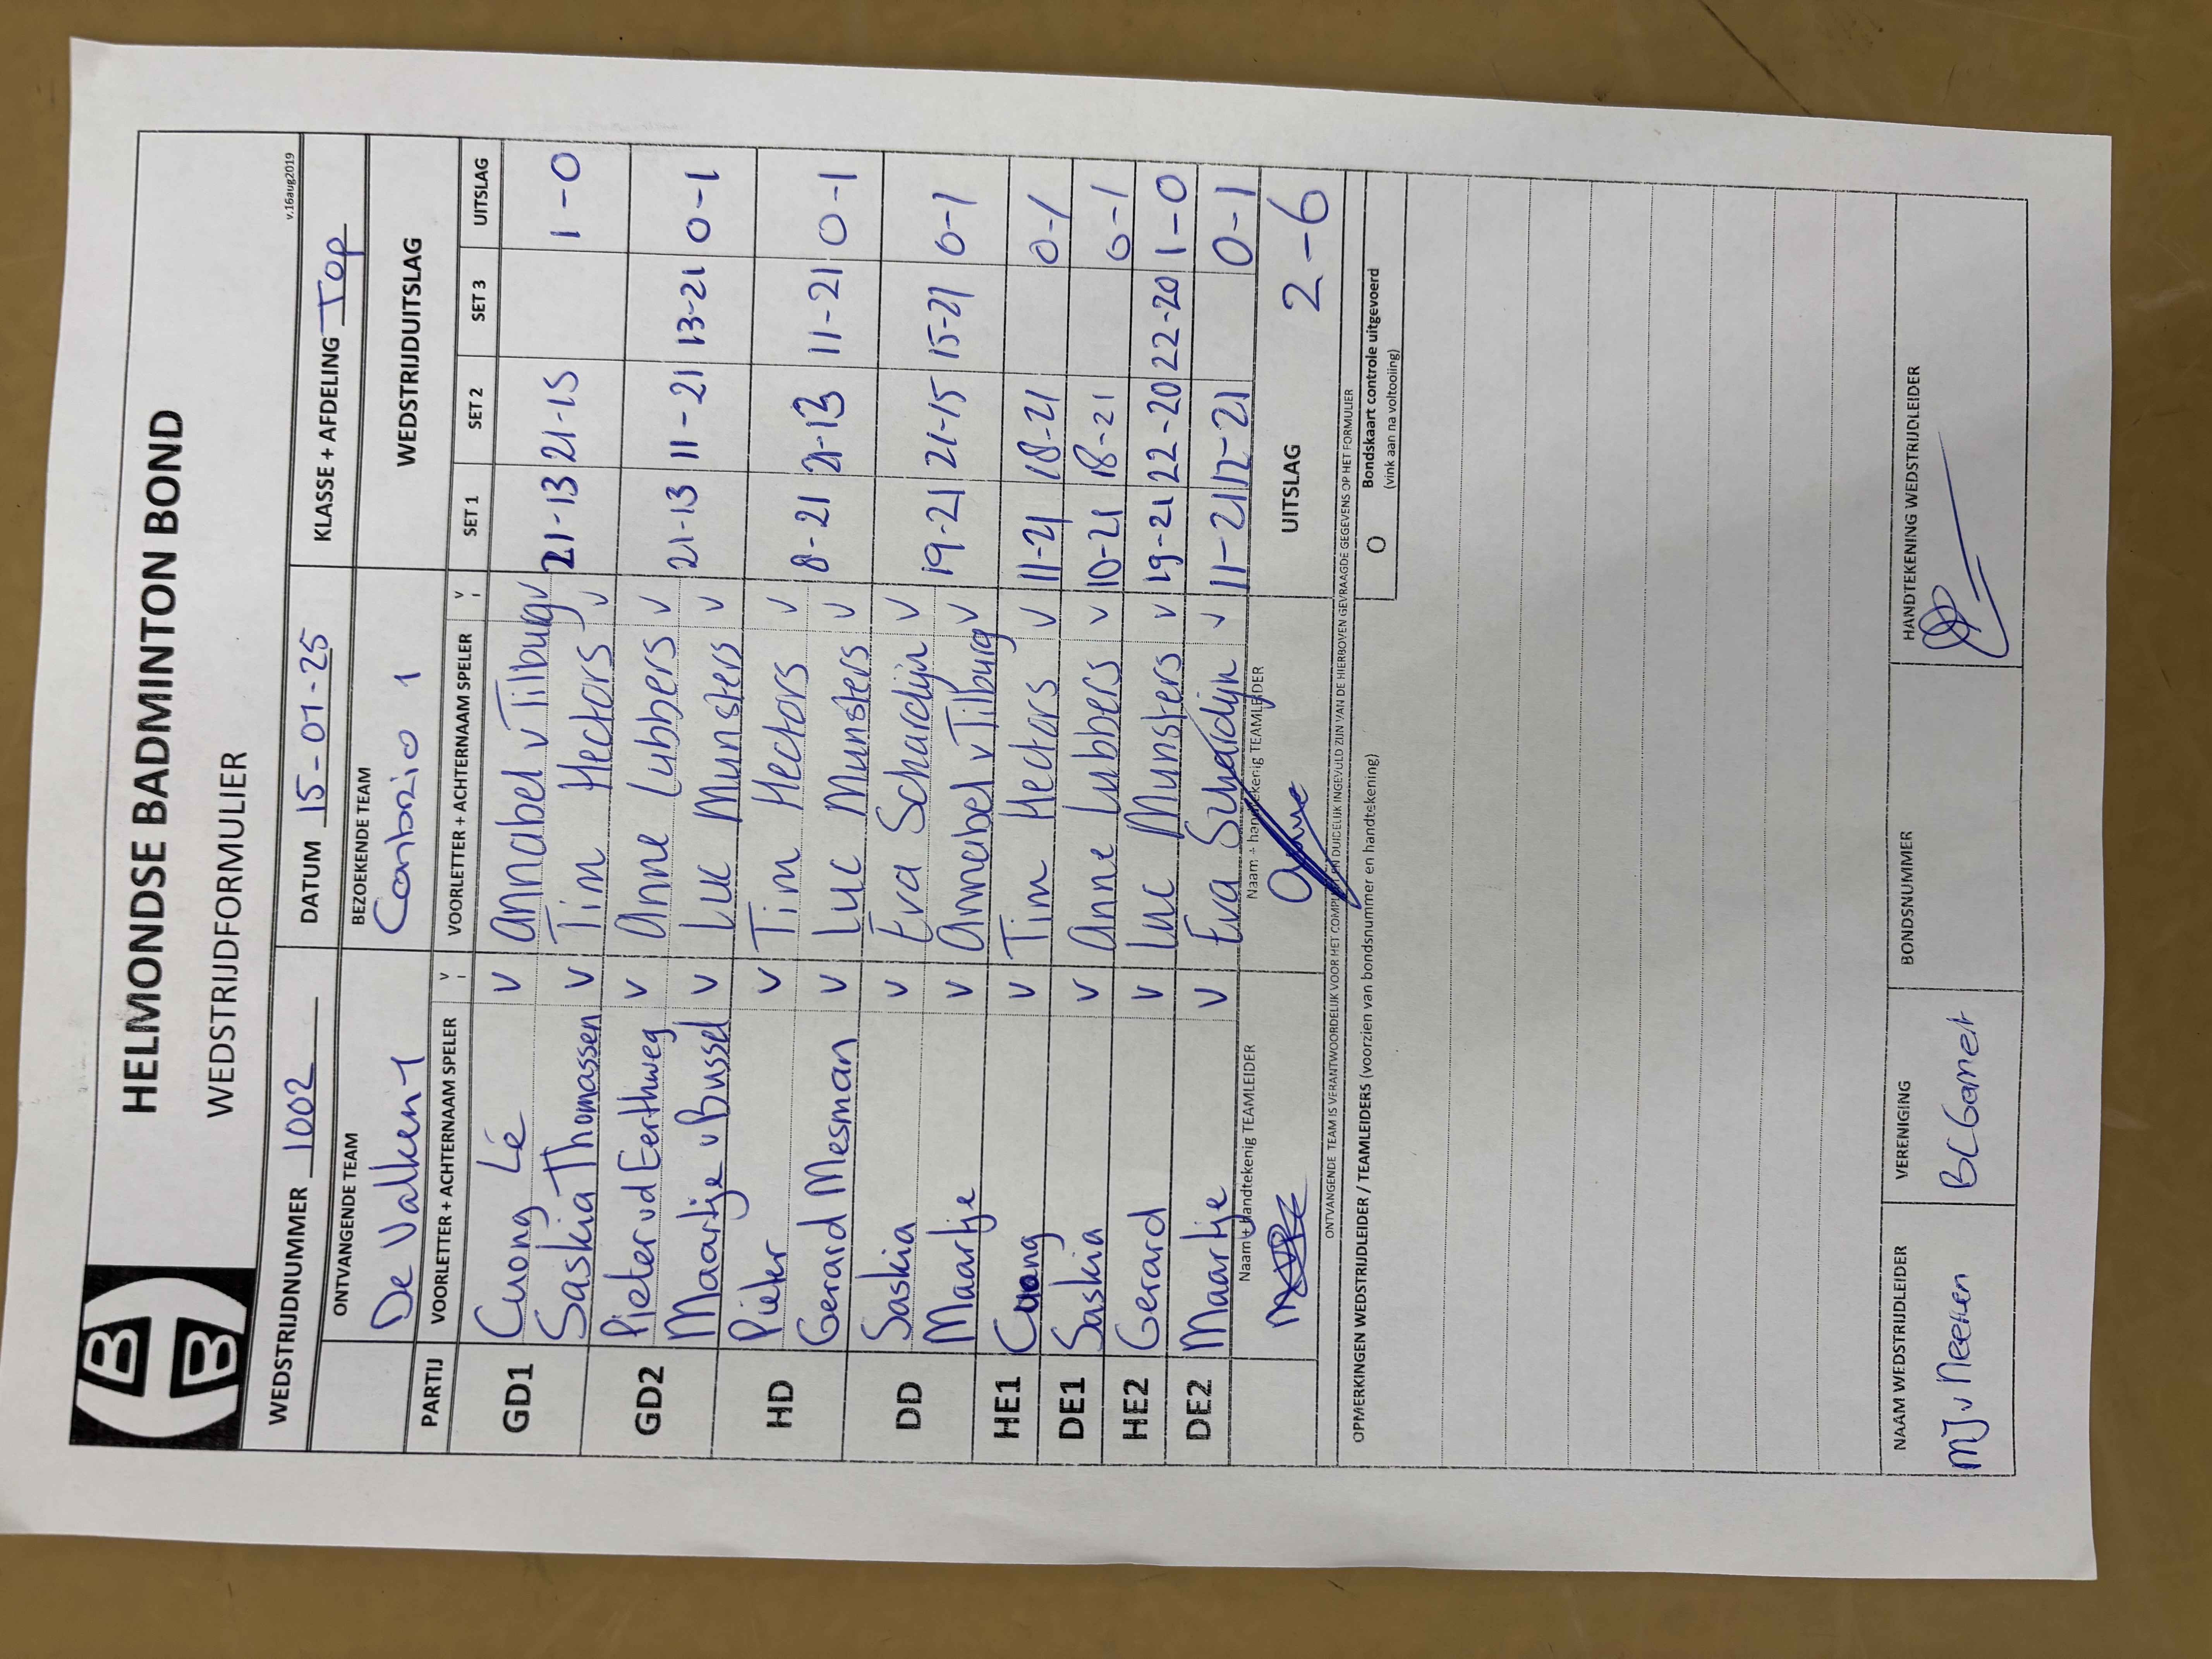 HELMONDSE BADMINTON BOND
WEDSTRIJDFORMULIER
v.16aug2019
WEDSTRIJDNUMMER 1002 DATUM 15-01-25 KLASSE + AFDELING Top
ONTVANGENDE TEAM BEZOEKENDE TEAM WEDSTRIJDUITSLAG
De Valken 1 Carbrio 1
PARTIJ VOORLETTER + ACHTERNAAM SPELER V VOORLETTER + ACHTERNAAM SPELER V SET 1 SET 2 SET 3 UITSLAG
GD1 Cuong Lé v Annabel v Tilburg v
Saskia Thomassen v Tim Hectors v 21-13 21-15 1-0
GD2 Pieter vd Eerthweg v Anne Lubbers v
Maartje v Bussel v Luc Munsters v 21-13 11-21 13-21 0-1
HD Pieter v Tim Hectors v
Gerard Mesman v Luc Munsters v 8-21 21-13 11-21 0-1
DD Saskia v Eva Schardijn v
Maartje v Annabel v Tilburg v 19-21 21-15 15-21 0-1
HE1 Cuong v Tim Hectors v 11-21 18-21 0-1
DE1 Saskia v Anne Lubbers v 10-21 18-21 0-1
HE2 Gerard v Luc Munsters v 19-21 22-20 22-20 1-0
DE2 Maartje v Eva Schardijn v 11-21 12-21 0-1
Naam + handtekenig TEAMLEIDER Naam + handtekenig TEAMLEIDER UITSLAG 2-6
ONTVANGENDE TEAM IS VERANTWOORDELIJK VOOR HET COMPLEET EN DUIDELIJK INGEVULD ZIJN VAN DE HIERBOVEN GEVRAAGDE GEGEVENS OP HET FORMULIER
OPMERKINGEN WEDSTRIJDLEIDER / TEAMLEIDERS (voorzien van bondsnummer en handtekening)
O Bondskaart controle uitgevoerd
(vink aan na voltooling)
NAAM WEDSTRIJDLEIDER VERENIGING BONDSNUMMER HANDTEKENING WEDSTRIJDLEIDER
MJ v Neerven BC Gamet